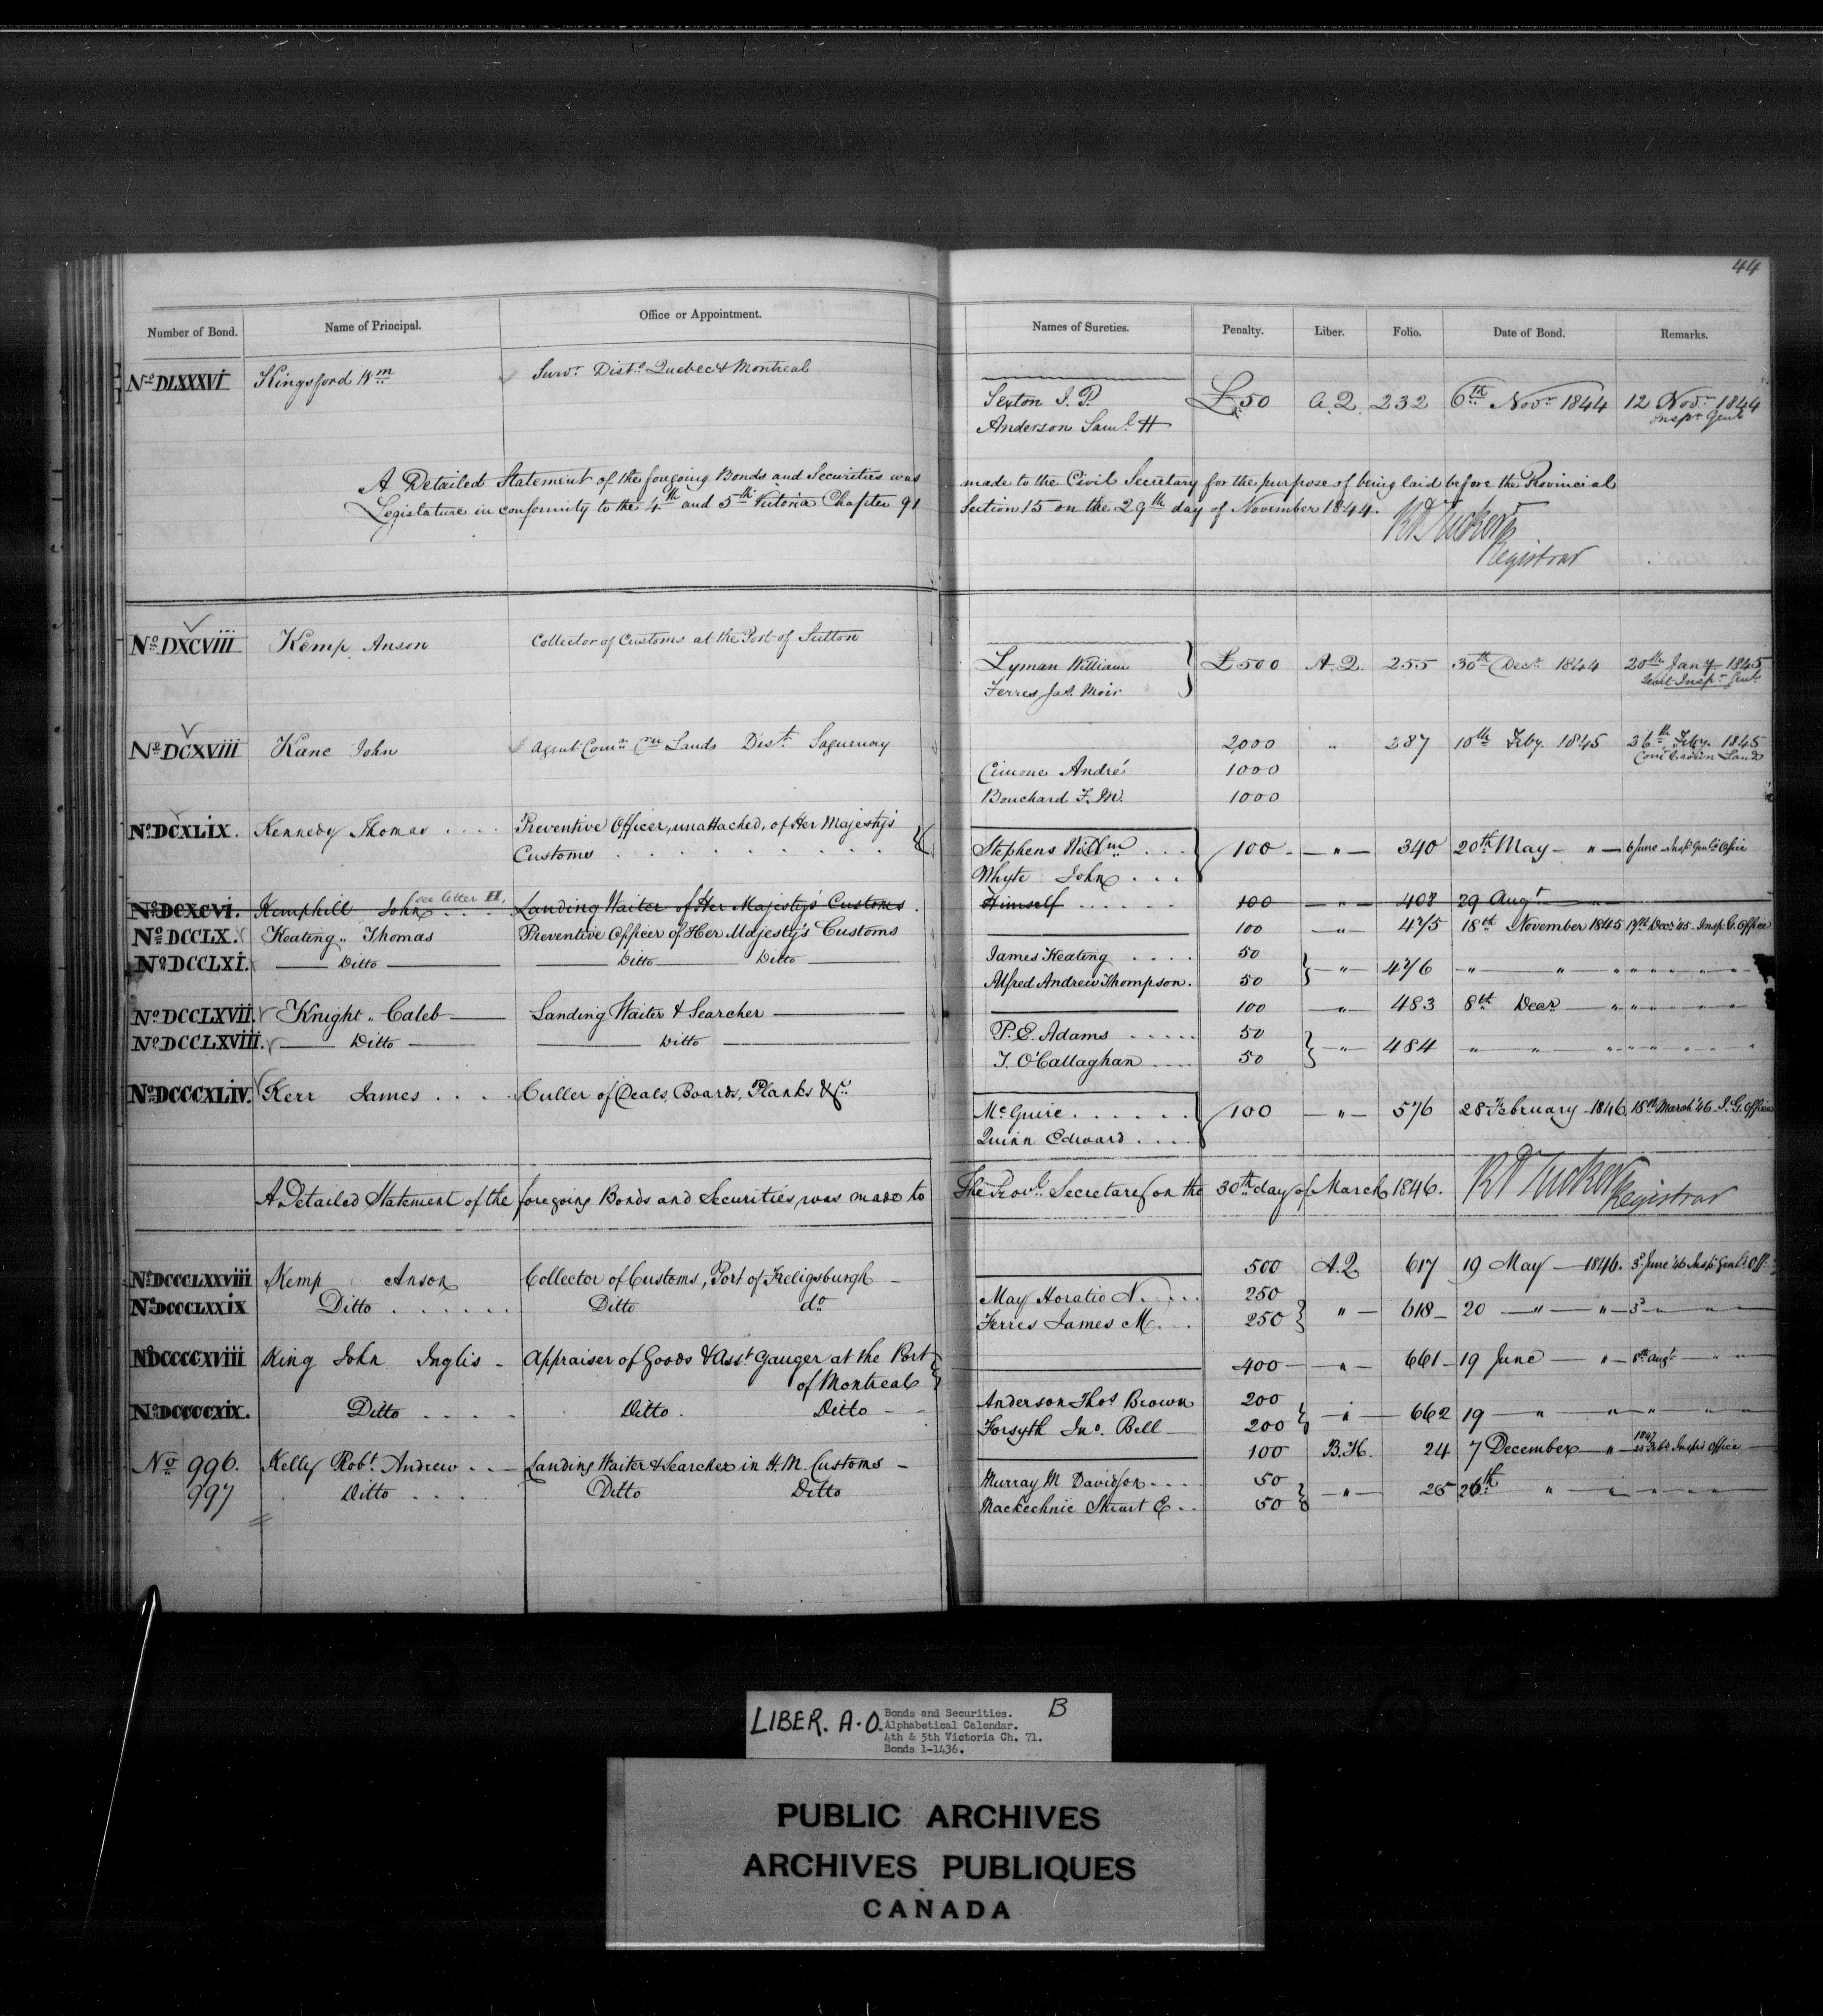 44
Number of Bond. Name of Principal. Office or Appointment. Names of Sureties. Penalty. Liber. Folio. Date of Bond. Remarks.
No DLXXXVI Kingsford Wm Survr Dists Quebec & Montreal
Sexton J. P. £50 A.Q. 232 6th Novr 1844 12 Novr 1844
Anderson Saml H Inspr Genl
A Detailed Statement of the foregoing Bonds and Securities was made to the Civil Secretary for the purpose of being laid before the Provincial
Legislature in conformity to the 4th and 5th Victoria Chapter 91 Section 15 on the 29th day of November 1844.
R A Tucker
Registrar
No DXCVIII Kemp Anson Collector of Customs at the Port of Sutton
Lyman William £500 A.Q. 255 30th Decr 1844 20th Jany 1845
Ferres Jas. Moir Inspr Genl
No DCXVIII Kane John Agent Comr Crn Lands Dist. Saguenay 2,000 " 287 10th Feby. 1845 26th Feby. 1845
Cimone André 1000 Comr Crown Lands
Bouchard F. M. 1000
No DCXLIX. Kennedy Thomas .... Preventive Officer, unattached, of Her Majesty's
Customs . . . . . . . Stephens Willm ... 100 - — " — 340 20th May — " — 6 June - Inspr Genls Office
Whyte John ...
No DCXCVI. Kemphill John see letter H. Landing Waiter of Her Majesty's Customs. Himself ...... 100 — " — 408 29 Augt — " —
No DCCLX. Keating " Thomas Preventive Officer of Her Majesty's Customs 100 — " — 475 18th November 1845 17th Decr '45. Insp. G. Office
No DCCLXI. — Ditto — — Ditto — Ditto — James Keating .... 50
Alfred Andrew Thompson. 50 — " — 476 — " — " — " " " "
No DCCLXVII. Knight " Caleb — Landing Waiter & Searcher — 100 — " — 483 8th Decr — " " " "
No DCCLXVIII. — Ditto — — Ditto — P. E. Adams ..... 50
T. O'Callaghan ... 50 — " — 484 " " " " " " "
No DCCCXLIV. Kerr James .... Culler of Deals, Boards, Planks &c.
McGuire ...... 100 — " — 576 28 February 1846. 18th March '46. I. G. Office
Quinn Edward ....
A Detailed Statement of the foregoing Bonds and Securities, was made to The Provl. Secretary on the 30th day of March 1846. R A Tucker
Registrar
No DCCCLXXVIII Kemp Anson Collector of Customs, Port of Freligsburgh — 500 A.Q 617 19 May — 1846. 3d June '46 Inspr Genls Off:
No DCCCLXXIX Ditto ...... Ditto do May Horatio N. .... 250
Ferres James M. ... 250 " — 618 — 20 — " — " — 3d — " — " —
No DCCCCXVIII King John Inglis — Appraiser of Goods & Asst Gauger at the Port 400 — — " — 661 — 19 June — " — 8th Augt — " "
of Montreal
No DCCCCXIX. Ditto .... Ditto. Ditto — Anderson Thos Brown 200
Forsyth Jno. Bell — 200 — " — 662 19 — " — " — " — " — "
No 996. Kelly Robt Andrew .. — Landing Waiter & Searcher in H. M. Customs — 100 B.H. 24 7 December — " — 1847 Feby Inspr's Office —
997 Ditto .... Ditto Ditto Murray M Davidson ... 50
Mackechnie Stuart E .. 50 — " — 25 26th " — " — " — " — "
LIBER. A.O. Bonds and Securities. B
Alphabetical Calendar.
4th & 5th Victoria Ch. 71.
Bonds 1-1436.
PUBLIC ARCHIVES
ARCHIVES PUBLIQUES
CANADA